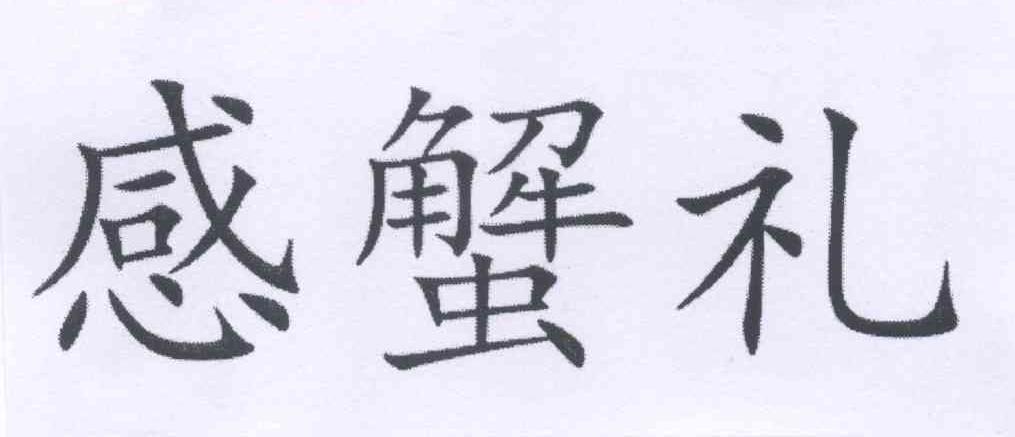 感蟹礼